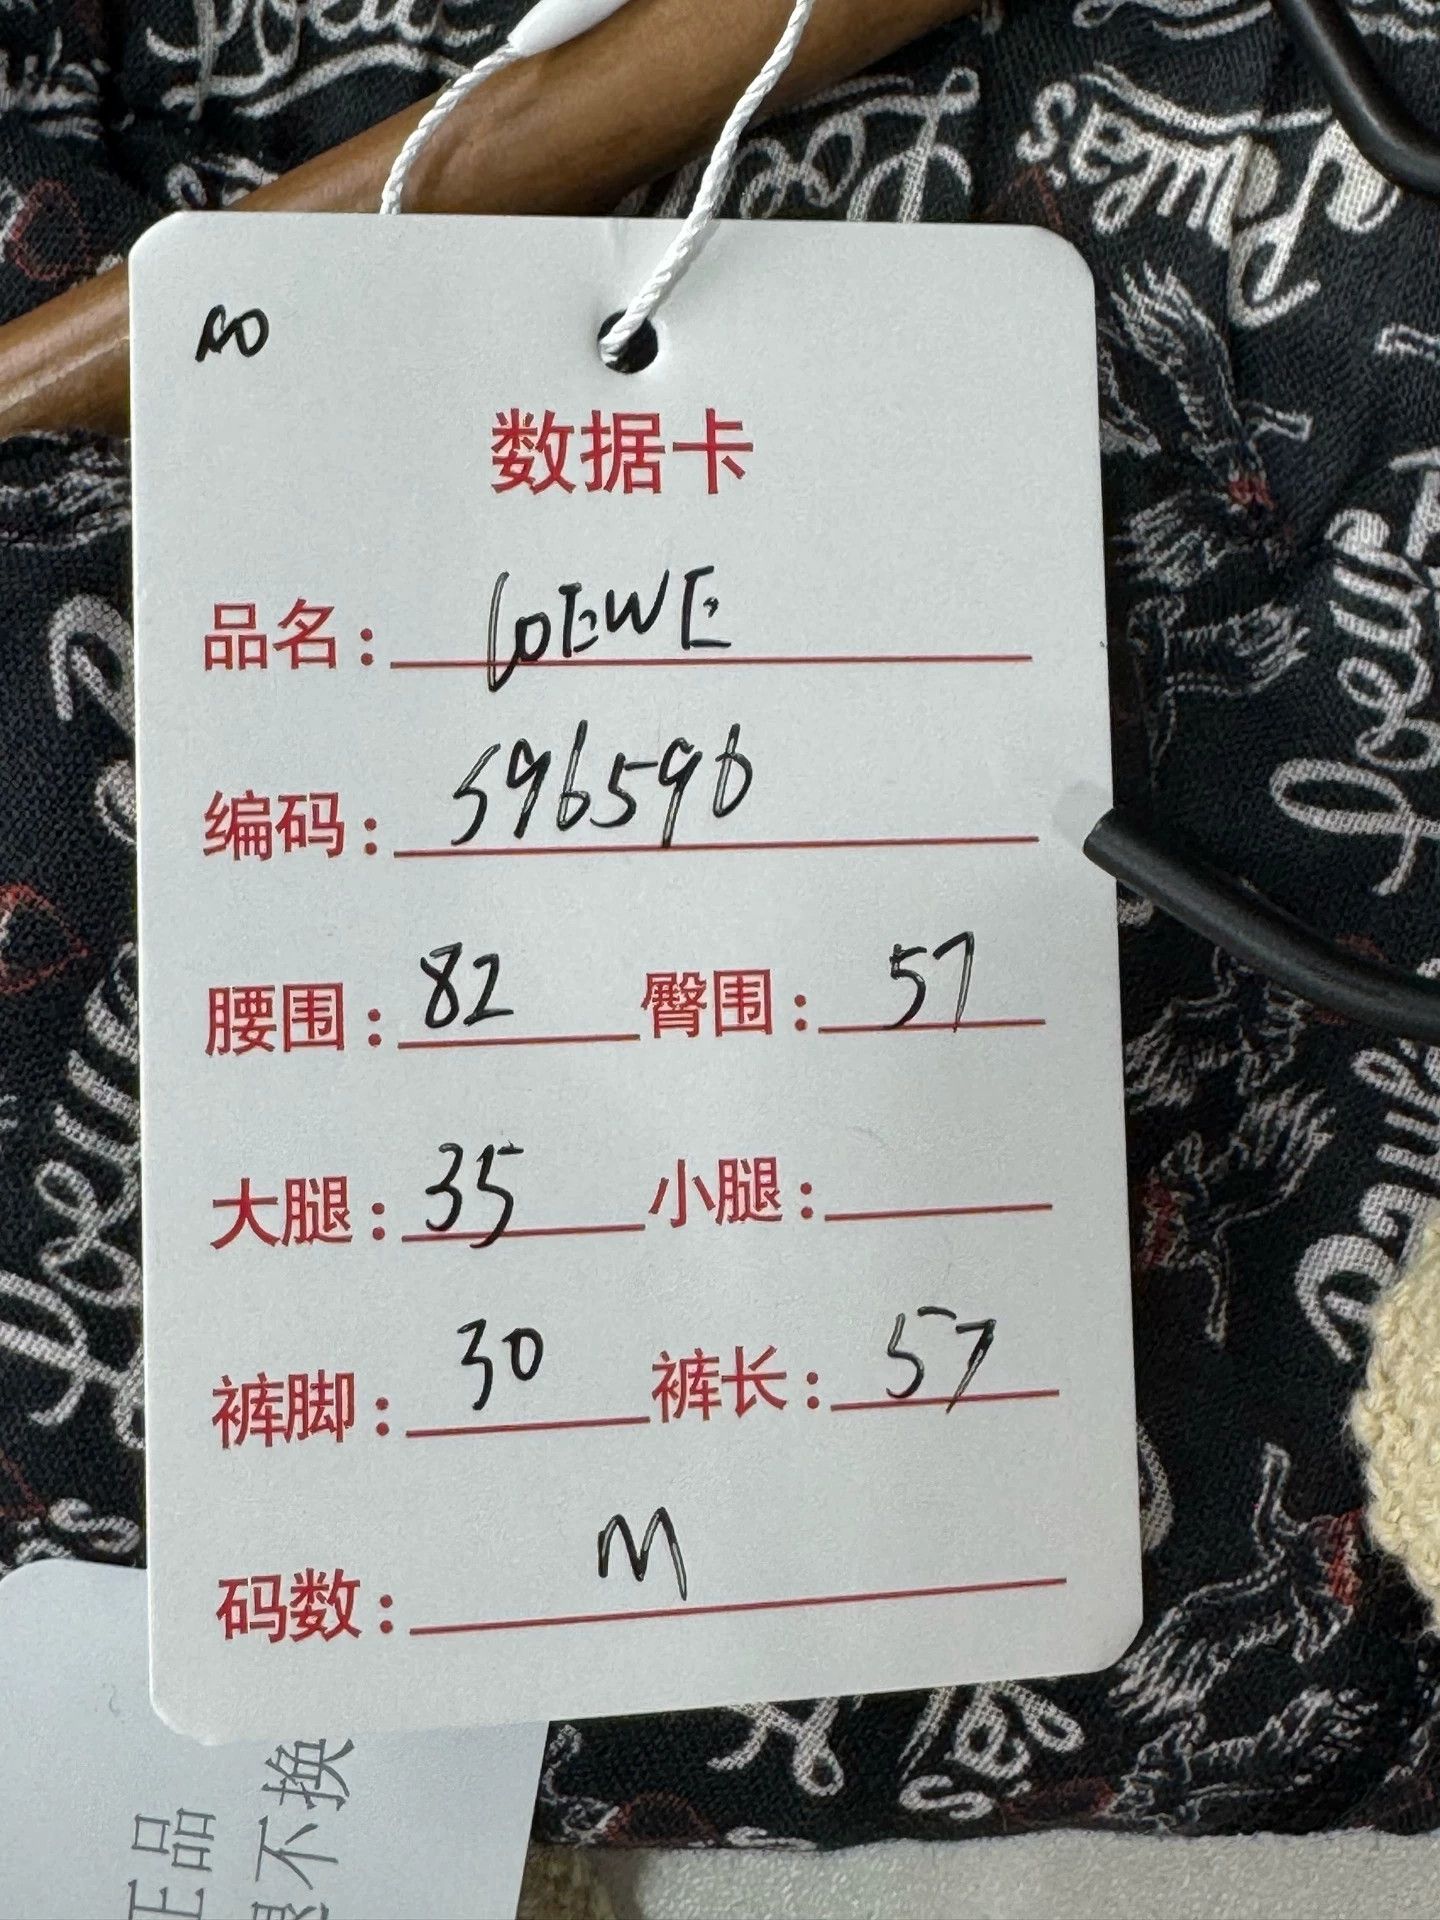 数据卡
品名： LOEWE
编码： 596596
腰围：82 臀围：57
大腿：35 小腿：
裤脚：30 裤长：57
码数： M
正品
不换
Paula's
Loewe